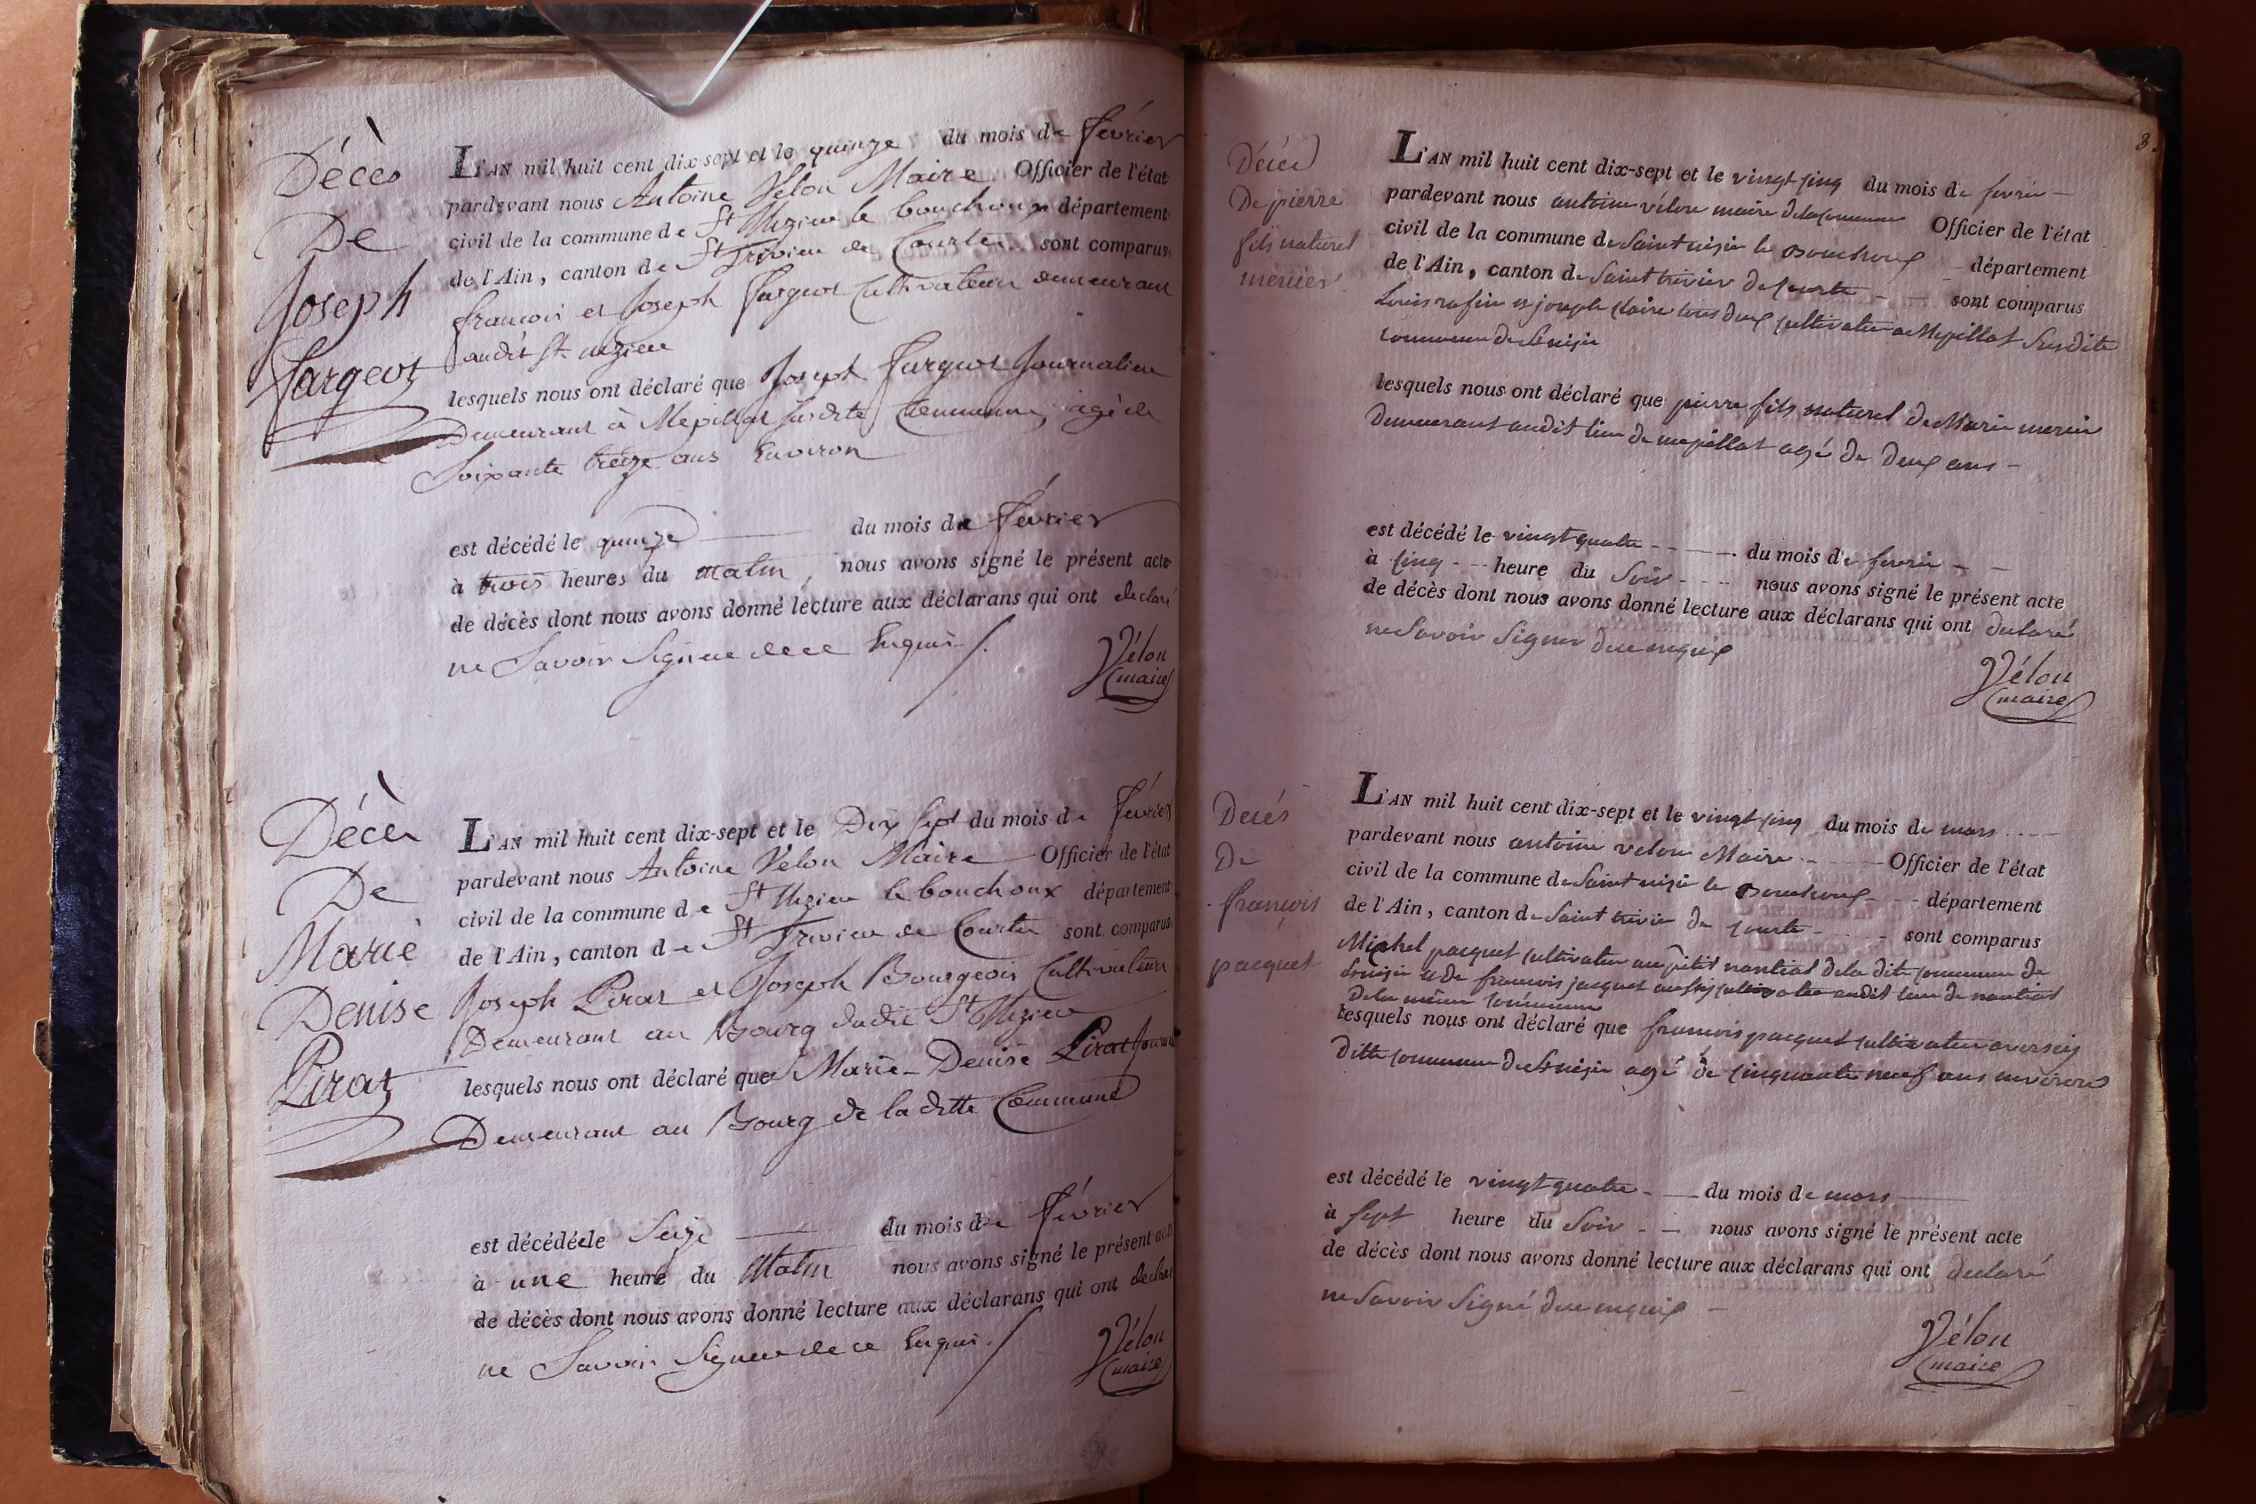 Décès
De
Joseph
Fargeot
L'AN mil huit cent dix-sept et le quinze du mois de février
pardevant nous Antoine Vélon Maire Officier de l'état
civil de la commune de St Nizier le bouchoux département
de l'Ain, canton de St Trivier de Courtes sont comparus
françois et Joseph Fargeot Cultivateurs demeurant
audit St nizier
lesquels nous ont déclaré que Joseph Fargeot Journalier
Demeurant à Mepillat susdite Commune, agé de
Soixante treize ans Environ
est décédé le quinze du mois de février
à trois heures du matin, nous avons signé le présent acte
de décès dont nous avons donné lecture aux déclarans qui ont declaré
ne Savoir Signer de ce Enquis
Vélon
maire
Décès
De
Marie
Denise
Pirat
L'AN mil huit cent dix-sept et le Dix Sept du mois de février
pardevant nous Antoine Vélon Maire Officier de l'état
civil de la commune de St Nizier le bouchoux département
de l'Ain, canton de St Trivier de Courtes sont comparus
Joseph Pirat et Joseph Bourgeois Cultivateurs
Demeurant au Bourg dudit St Nizier
lesquels nous ont déclaré que Marie-Denise Pirat
Demeurant au Bourg de la ditte Commune
est décédée le Seize du mois de février
à une heure du Matin nous avons signé le présent acte
de décès dont nous avons donné lecture aux déclarans qui ont declaré
ne Savoir Signer de ce Enquis.
Vélon
maire
3.
Décéd
De pierre
fils naturel
menier
L'AN mil huit cent dix-sept et le vingt sinq du mois de fevrie
pardevant nous antoine vélon maire dela commune Officier de l'état
civil de la commune de Saint nisie le Bouchoux département
de l'Ain, canton de Saint trivier de courte sont comparus
Louis rafin et joseph claire tous deux cultivateur a Mepillat susdite
commune de St nisie
lesquels nous ont déclaré que pierre fils naturel de Marie menie
Demeurant audit lieu de mepillat agé de deux ans
est décédé le vingt quatre du mois de fevrie
à cinq heure du Soir nous avons signé le présent acte
de décès dont nous avons donné lecture aux déclarans qui ont declaré
ne Savoir Signer de ce enquis
Vélon
maire
Decés
De
françois
pacquet
L'AN mil huit cent dix-sept et le vingt sinq du mois de mars
pardevant nous antoine velon Maire Officier de l'état
civil de la commune de Saint nisie le Bouchoux département
de l'Ain, canton de Saint trivie de courte sont comparus
Michel pacquet cultivateur au petit nantial dela dite commune de
St nisie et de francois jacquet aussy cultivateur audit lieu de nantial
Dela même commune
lesquels nous ont déclaré que francois pacquet cultivateur
Ditte commune de St nisie agé de cinquante neuf ans environ
est décédé le vingt quatre du mois de mars
à sept heure du Soir nous avons signé le présent acte
de décès dont nous avons donné lecture aux déclarans qui ont declaré
ne Savoir Signé de ce enquis
Vélon
maire